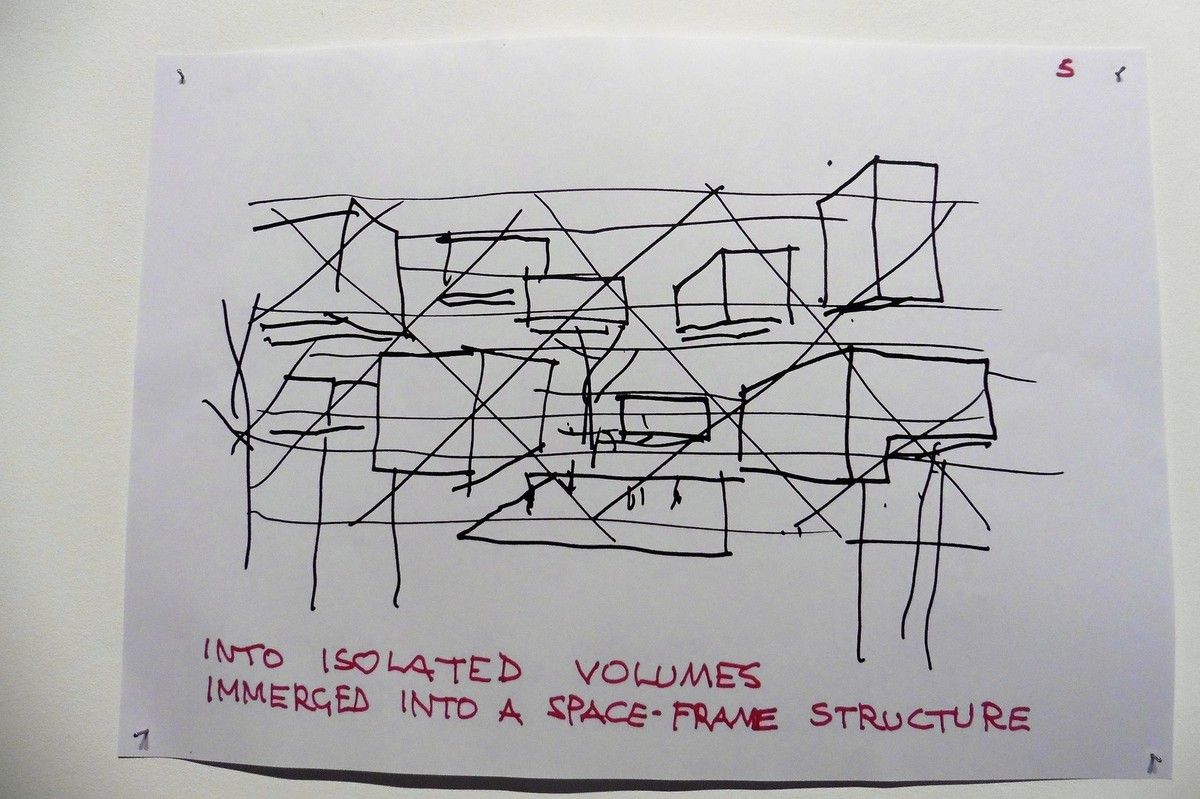 5
INTO ISOLATED VOLUMES
IMMERGED INTO A SPACE-FRAME STRUCTURE